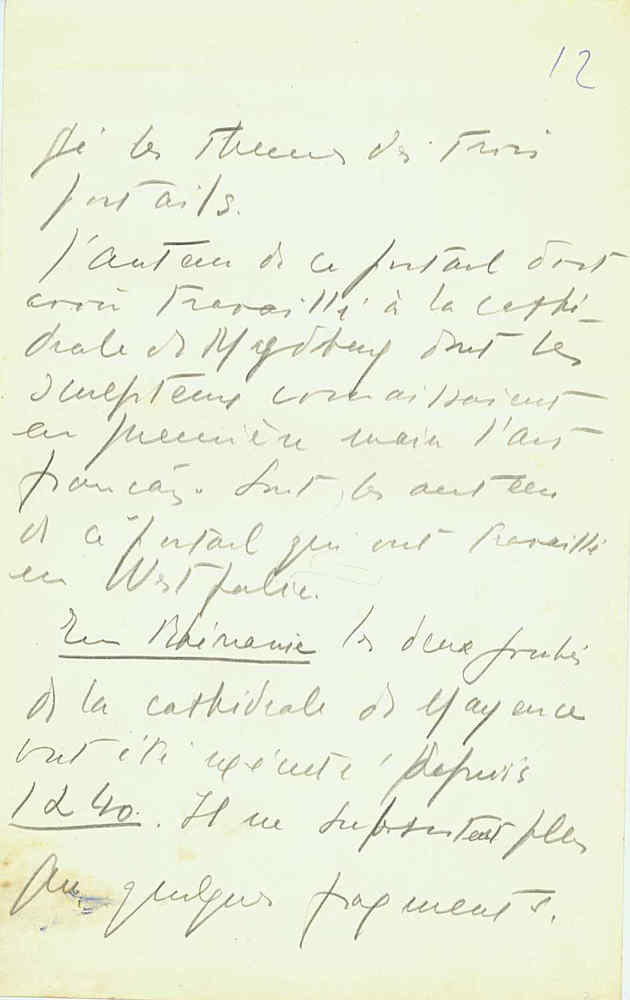 12
les thèmes des trois
portails.
l'auteur de ce portail doit
avoir travaillé à la cathé-
drale de Magdburg dont les
sculpteurs connaissaient
en première main l'art
français. Sont les auteurs
de ce portail qui ont travaillé
en Westfalie.
En Rhénanie les deux jubés
de la cathédrale de Mayence
ont été exécuté depuis
1240. Il ne subsistent plus
que quelques fragments.